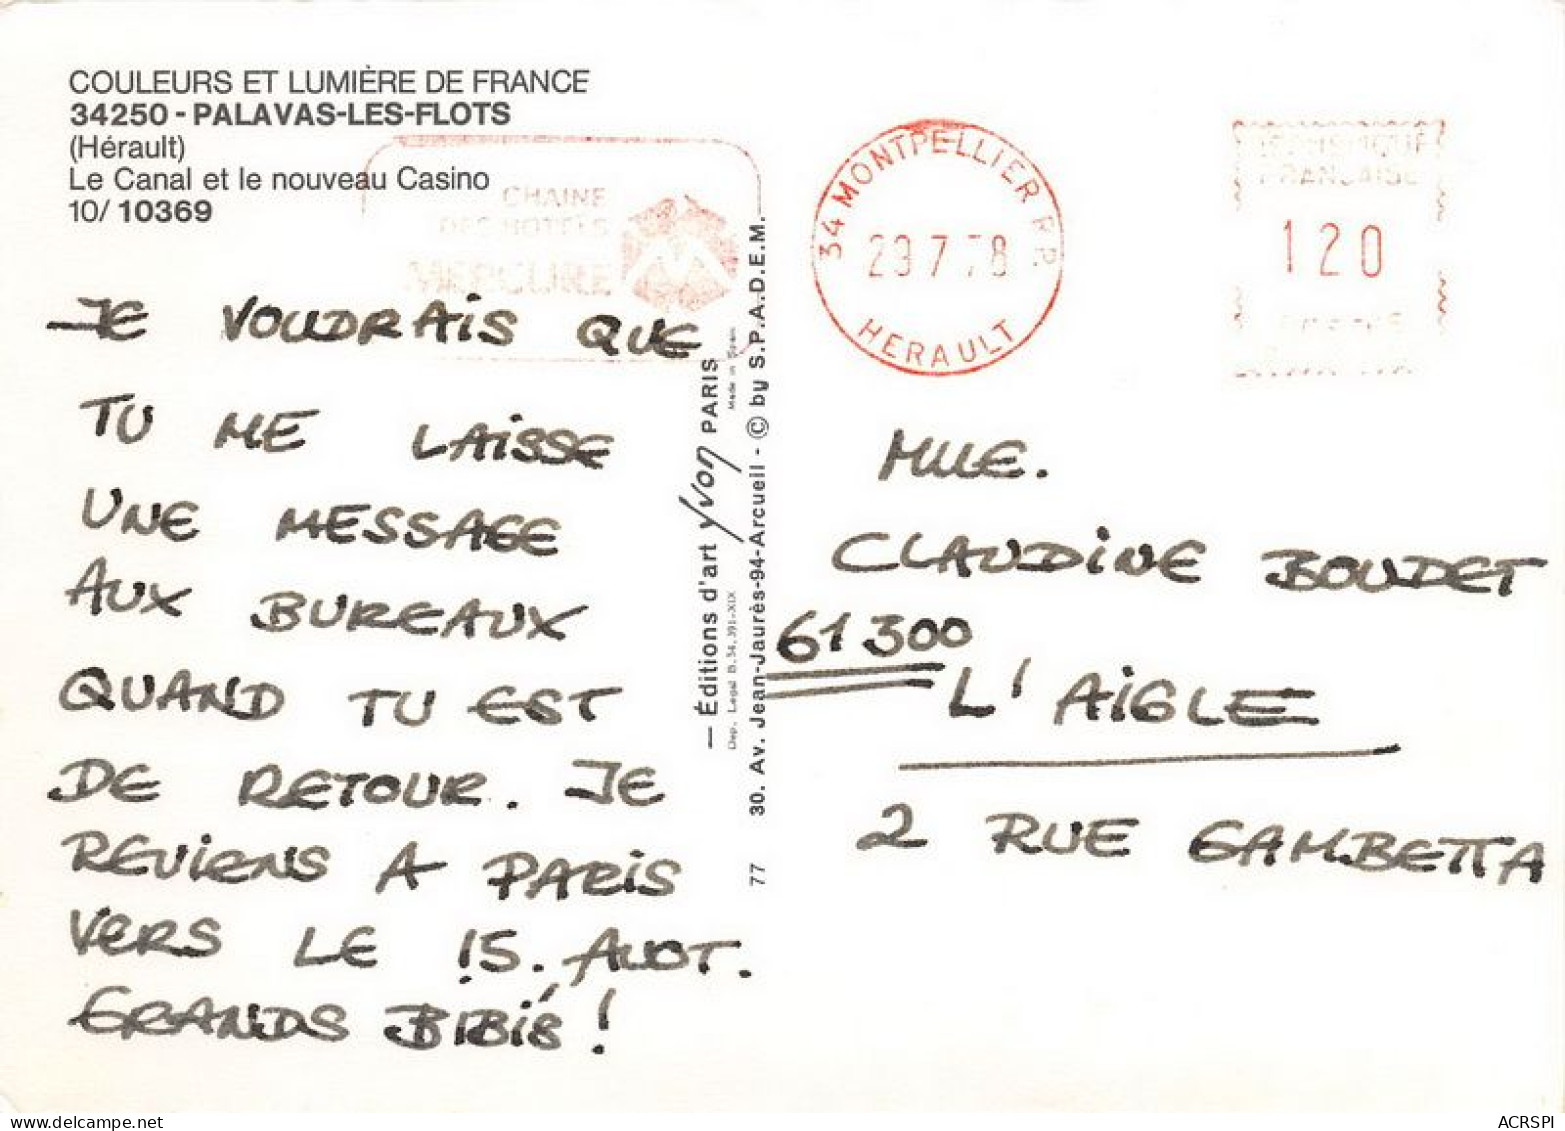 COULEURS ET LUMIÈRE DE FRANCE
34250 - PALAVAS-LES-FLOTS
(Hérault)
Le Canal et le nouveau Casino
10/ 10369
CHAINE
DES HOTELS
MERCURE
JE VOUDRAIS QUE
TU ME LAISSE
UNE MESSAGE
AUX BUREAUX
QUAND TU EST
DE RETOUR. JE
REVIENS A PARIS
VERS LE 15. AUOT.
GRANDS BIBIS !
— Éditions d'art yvon PARIS
Dep. Legal B.34.391-XIX
Made in Spain
77 30. Av. Jean-Jaurès-94-Arcueil - © by S.P.A.D.E.M.
34 MONTPELLIER R.P.
29 7 78
HERAULT
REPUBLIQUE
FRANÇAISE
120
POSTES
MLLE.
CLAUDINE BOUDET
61300
L'AIGLE
2 RUE GAMBETTA
www.delcampe.net
ACRSPI